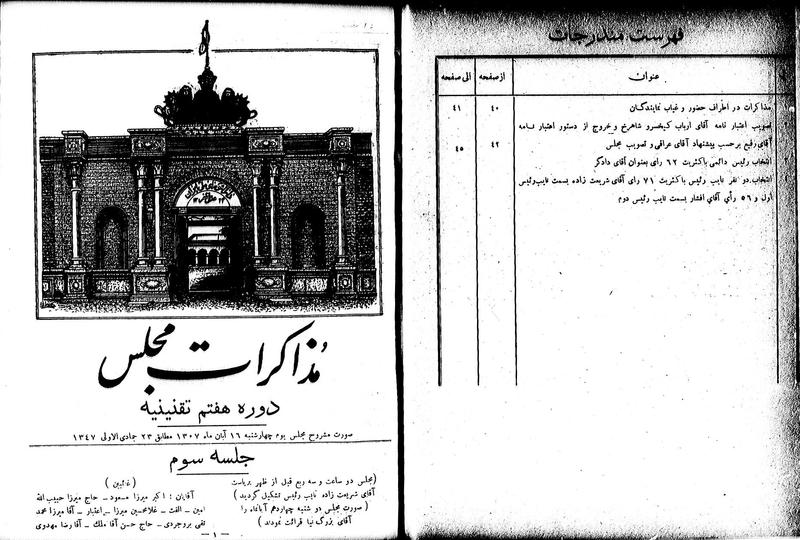 مذاکرات مجلس
دوره هفتم تقنینیه
صورت مشروح مجلس یوم چهارشنبه ۱۶ آبان ماه ۱۳۰۷ مطابق ۲۳ جمادی الاولی ۱۳۴۷
جلسه سوم
(مجلس دو ساعت و سه ربع قبل از ظهر بریاست
آقای شریعت زاده نایب رئیس تشکیل گردید)
(صورت مجلس دو شنبه چهاردهم آبانماه را
آقای بزرگ نیا قرائت نمودند)
(غائبین)
آقایان: اکبر میرزا مسعود ـ حاج میرزا حبیب الله
امین ـ الفت ـ غلامحسین میرزا ـ اعتبار ـ آقا میرزا محمد
تقی بروجردی ـ حاج حسن آقا ملک ـ آقا رضا مهدوی
ـ ۱ ـ
فهرست مندرجات
عنوان
از صفحه
الی صفحه
مذاکرات در اطراف حضور و غیاب نمایندگان
۴۰
۴۱
تصویب اعتبار نامه آقای ارباب کیخسرو شاهرخ و خروج از دستور اعتبار نامه
آقای رفیع برحسب پیشنهاد آقای عراقی و تصویب مجلس
۴۲
۴۵
انتخاب رئیس دائمی باکثریت ۶۲ رای بعنوان آقای دادگر
انتخاب دو نفر نایب رئیس باکثریت ۷۱ رای آقای شریعت زاده بسمت نایب رئیس
اول و ۵۶ رأی آقای افشار بسمت نایب رئیس دوم